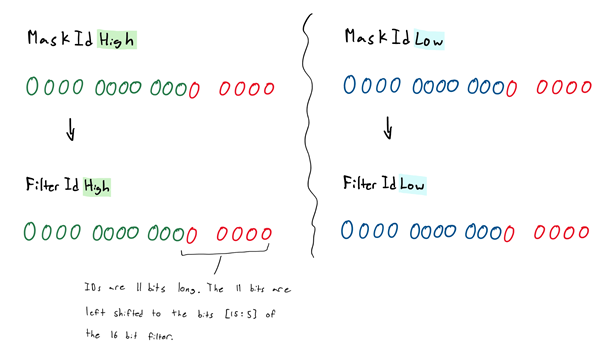 Mask Id High
0000 0000 0000 0000
Filter Id High
0000 0000 0000 0000
IDs are 11 bits long. The 11 bits are
left shifted to the bits [15:5] of
the 16 bit filter.
Mask Id Low
0000 0000 0000 0000
Filter Id Low
0000 0000 0000 0000